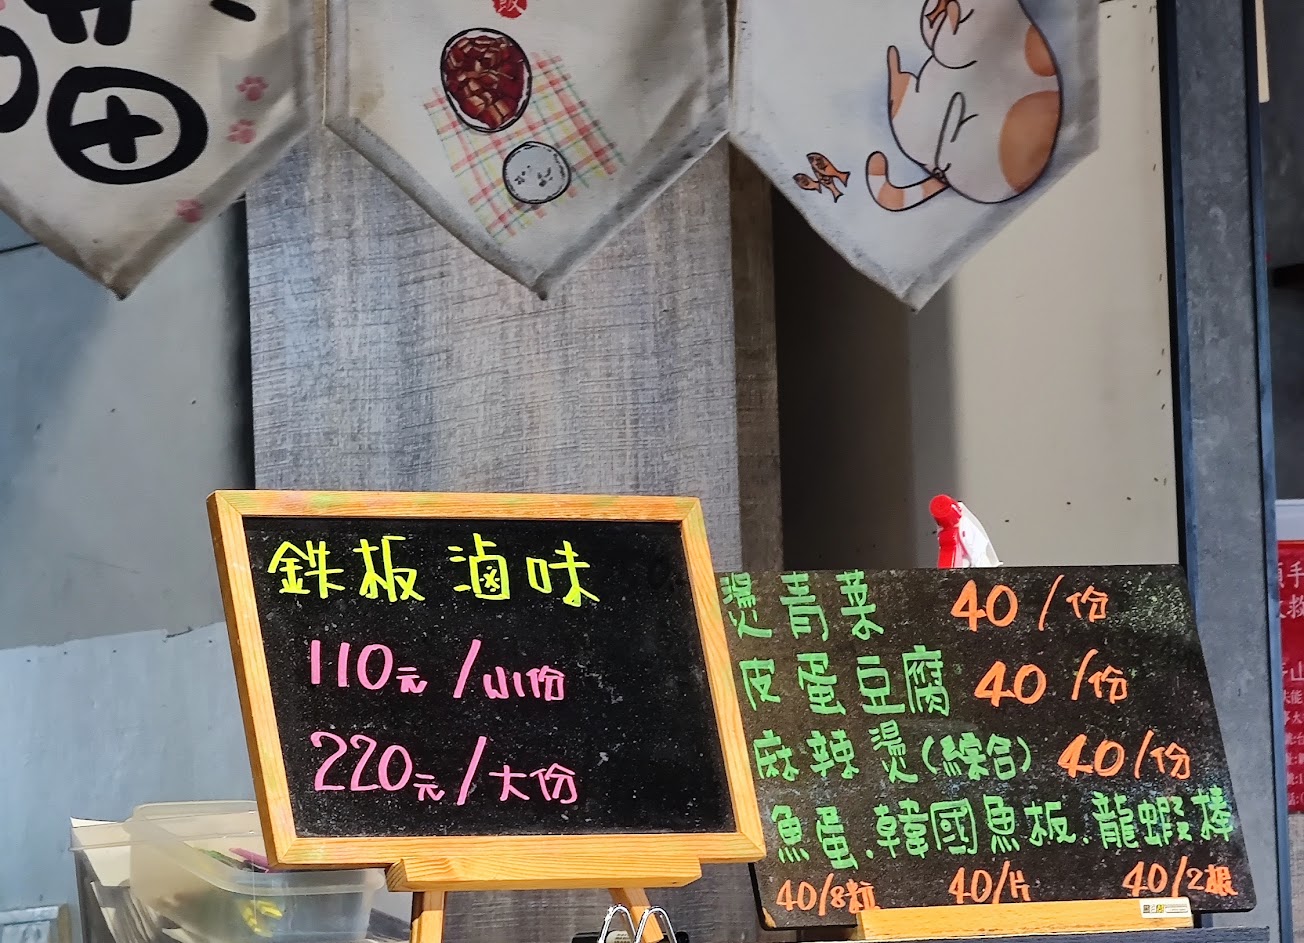 喵
飯
鉄板滷味
110元/小份
220元/大份
燙青菜 40/份
皮蛋豆腐 40/份
麻辣燙(綜合) 40/份
魚蛋.韓國魚板.龍蝦棒
40/8粒 40/片 40/2根